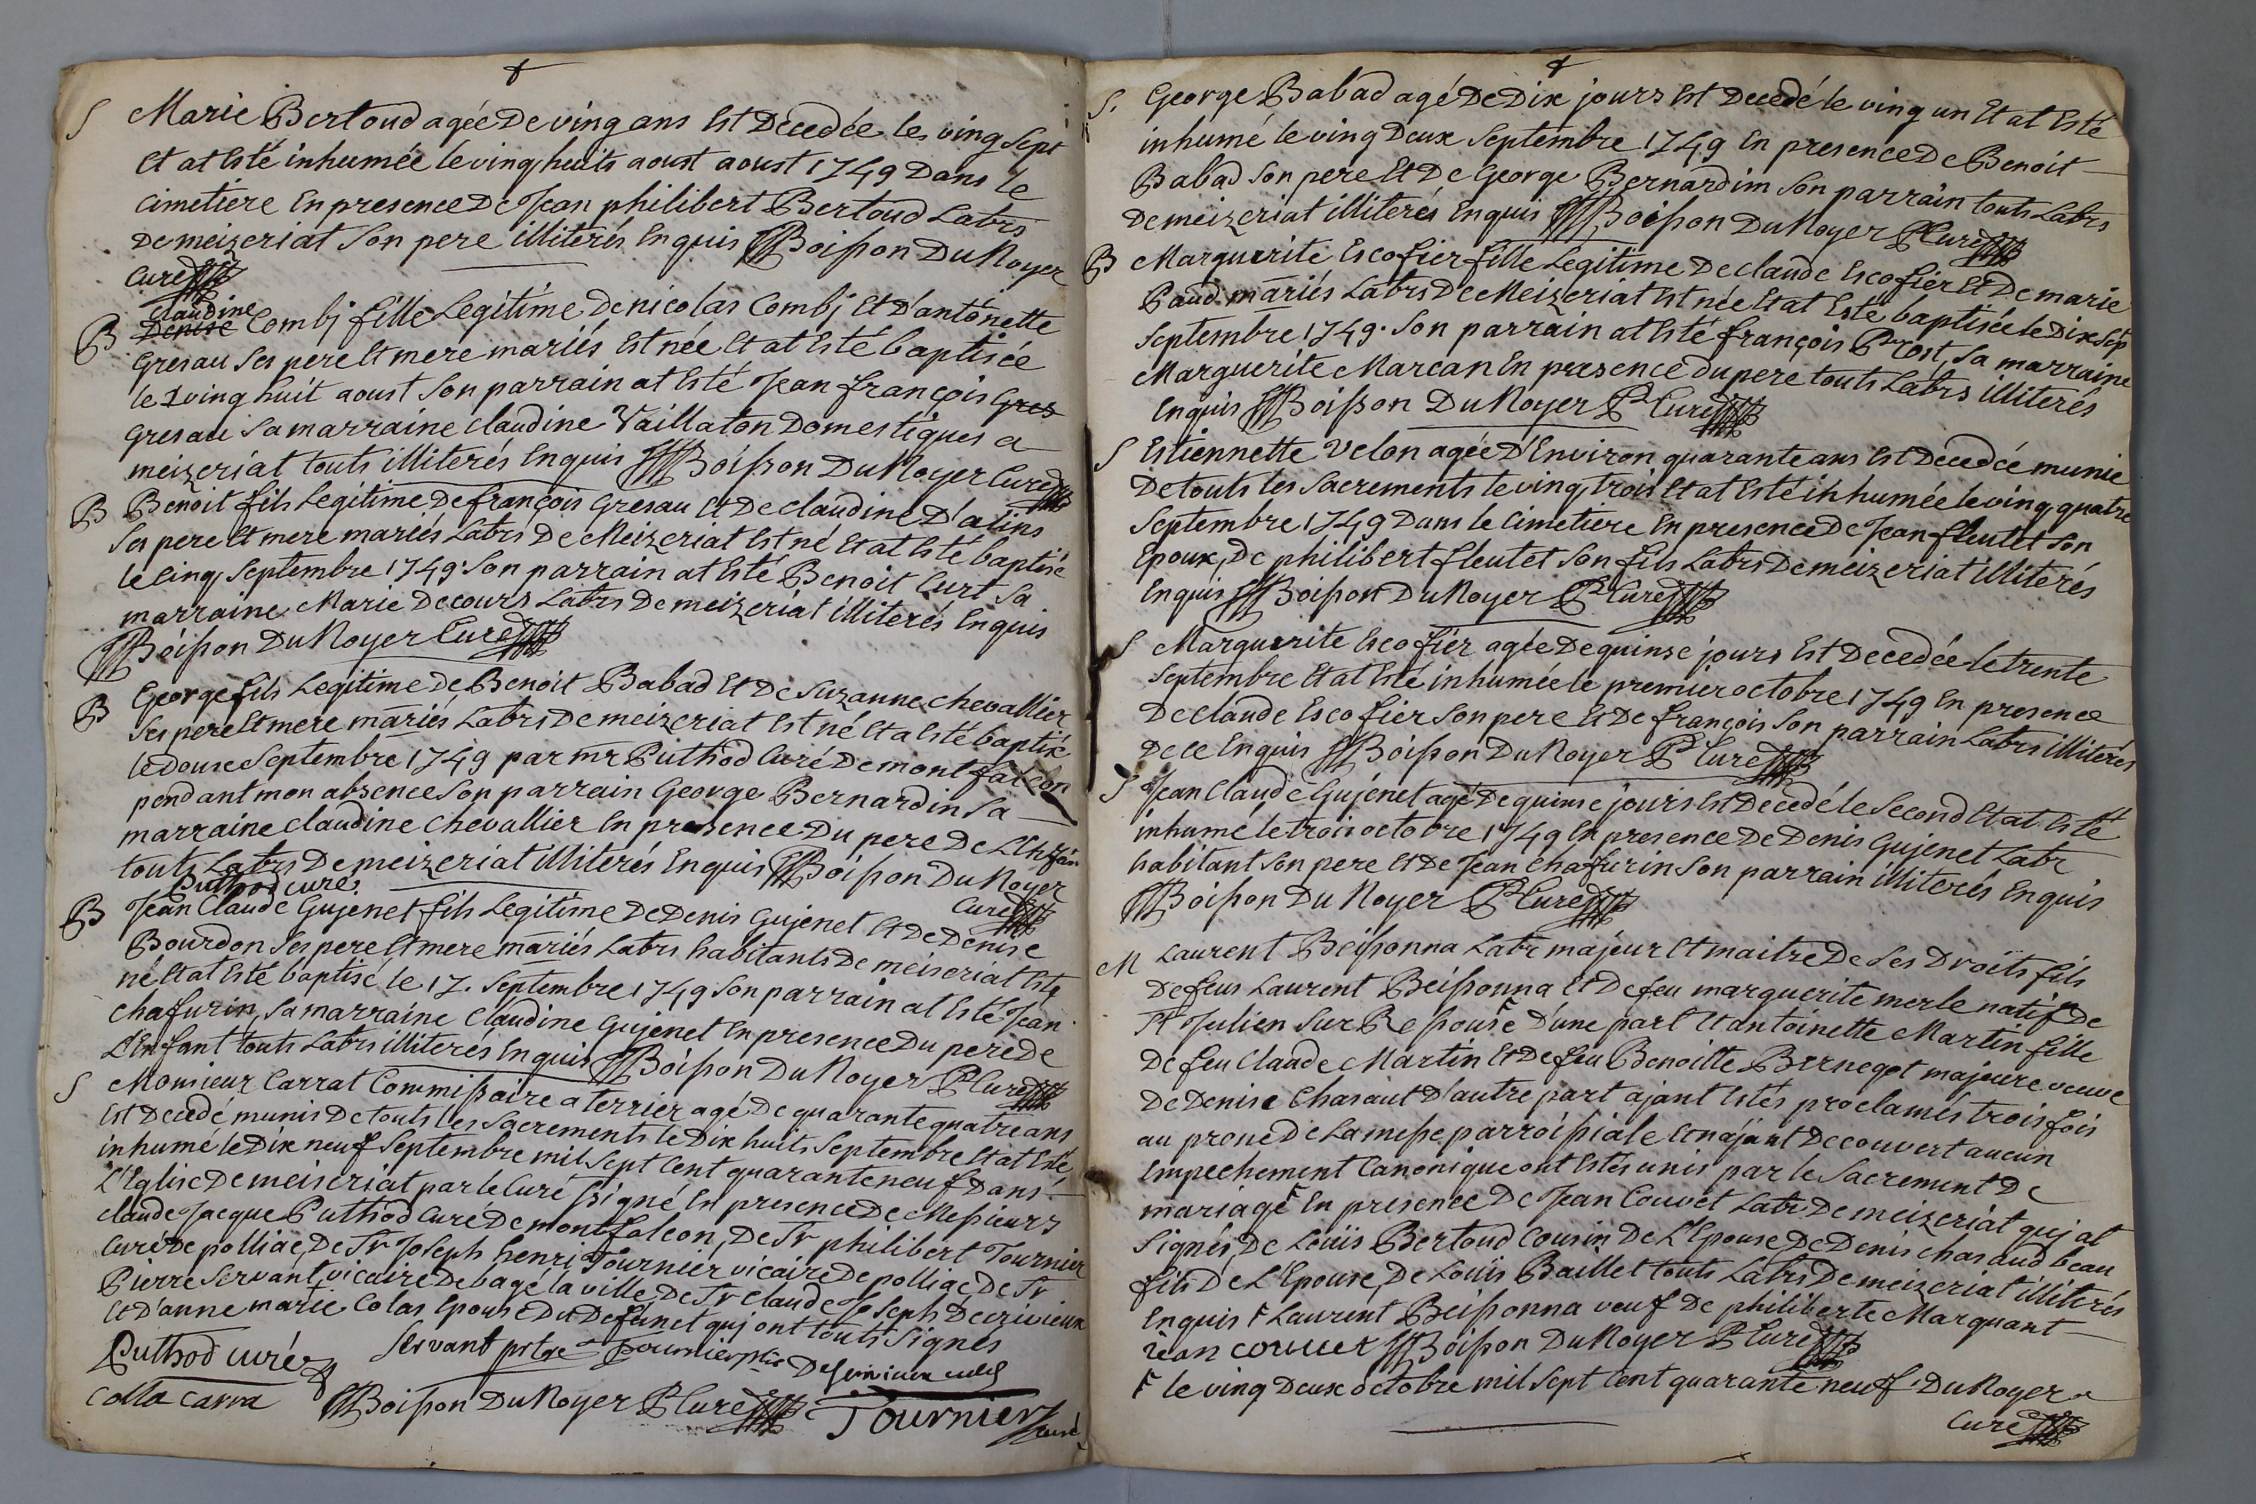 S Marie Bertoud agée De ving ans Est Decedée les ving sept
Et at Esté inhumée le ving huits aoust aoust 1749 Dans le
Cimetiere En presence De Jean philibert Bertoud Labrs
De meizeriat Son pere illiterés Enquis Boisson DuNoyer
Curé
Claudine
B Denise Combj fille Legitime De nicolas Combj Et D'antónette
Gresau Ses pere Et mere mariés Est née Et at Esté baptisée
le ving huit aoust Son parrain at Esté Jean françois Gres
Gresau Sa marraine Claudine Vaillaton Domestiques a
meizeriat touts illiterés Enquis Boisson DuNoyer Curé
B Benoit fils Legitime De françois Gresau Et De Claudine D'alins
Ses pere Et mere mariés Labrs De Meizeriat Est né Et at Esté baptisé
le Cinq Septembre 1749. Son parrain at Esté Benoit Curt Sa
marraine Marie Decours Labrs De meizeriat illiterés Enquis
Boisson DuNoyer Curé
B George fils Legitime De Benoit Babad Et De Suzanne Chevallier
Ses pere Et mere mariés Labrs De meizeriat Est né Et a Esté baptisé
le douse Septembre 1749 par mr Puthod Curé De montfalcon
pendant mon absence Son parrain George Bernardin Sa
marraine Claudine Chevallier En presence Du pere De L'Enfan
touts Labrs De meizeriat illiterés Enquis Boisson Du Noyer
Puthod curé. Curé
B Jean Claude Gujenet fils Legitime De Denis Gujenet Et De Denise
Bourdon Ses pere Et mere mariés Labrs habitants De meiseriat Esté
né Et at Esté baptisé le 17. Septembre 1749 Son parrain at Esté Jean
Chafurin, Sa marraine Claudine Gujenet En presence Du pere De
L'Enfant touts Labrs illiterés Enquis Boisson Du Noyer P Curé
S Monsieur Carrat Commissaire a terrier agé De quarante quatre ans
Est Decedé munis De touts les Sacrements le Dix huits Septembre Et at Esté
inhumé le Dix neuf Septembre mil Sept Cent quarante neuf Dans
L'Eglise De meiseriat par le Curé Ssigné En presence De Messieurs
Claude Jacque Puthod Curé De montfalcon, De Sr philibert Tournier
Curé De polliac, De Sr Joseph henri Tournier vicaire De polliac, De Sr
Pierre Servant, vicaire De bagé la ville, De Sr Claude Joseph Decrivieux
Et D'anne marie Colas Epouse Du Defunct quj ont touts Signés
Puthod curé Servant prtre Tournier
Colla Carra Boisson DuNoyer P Curé Tournier curé
S. George Babad agé De Dix jours Est Decedé le ving un Et at Esté
inhumé le ving Deux Septembre 1749 En presence De Benoit
Babad Son pere Et De George Bernardim Son parrain touts Labrs
De meizeriat illiterés Enquis Boisson DuNoyer P Curé
B Marguerite Escofier fille Legitime De claude Escofier Et De marie
Paud mariés Labrs De Meizeriat Est née Et at Esté baptisée le Dix Sep
Septembre 1749. Son parrain at Esté françois Prost, Sa marraine
Marguerite Marcan En presence Du pere touts Labrs illiterés
Enquis Boisson DuNoyer P Curé
S Estiennette Velon agée D'Environ quarante ans Est Decedée munie
De touts les Sacrements le ving trois Et at Esté inhumée le ving quatre
Septembre 1749 Dans le Cimetiere En presence De Jean fleutet Son
Epoux, De philibert fleutet Son fils Labrs De meizeriat illiterés
Enquis Boisson DuNoyer P Curé
S Marguerite Escofiér agée De quinse jours Est Decedée le trente
Septembre Et at Esté inhumée le premier octobre 1749 En presence
De Claude Escofier Son pere Et De françois Son parrain Labrs illiterés
De ce Enquis Boisson DuNoyer P Curé
S Jean Claude Gujénet agé De quinse jours Est Decedé le Second Et at Esté
inhumé le trois octobre 1749 En presence De Denis Gujenet Labr
habitant Son pere Et De Jean Chafurin Son parrain illiterés Enquis
Boisson Du Noyer P Curé
M Laurent Beissonna Labr majeur Et maitre De Ses Droits fils
De feus Laurent Beissonna Et De feu marguerite merle natif De
St Julien Sur Ressouse D'une part Et antoinette Martin fille
De feu Claude Martin Et De feu Benoitte Brnegot majeure veuve
De Denise Chasaut D'autre part ajant Estés proclamés trois fois
au prone De La messe parroissiale Et n'ajant Decouvert aucun
Empechement Canonique ont Estés unis par le Sacrement De
mariage F En presence De Jean Couvet Labr De meizeriat quj at
Signés, De Loüis Bertoud Cousin De L'Epouse, De Denis chasaud beau
fils De L'Epouse, De Louis Baillet touts Labrs De meizeriat illiterés
Enquis F Laurent Beissonna veuf De philiberte Marquant
iean couuet Boisson DuNoyer P Curé
F le ving Deux octobre mil Sept Cent quarante neuf. DuNoyer
Curé